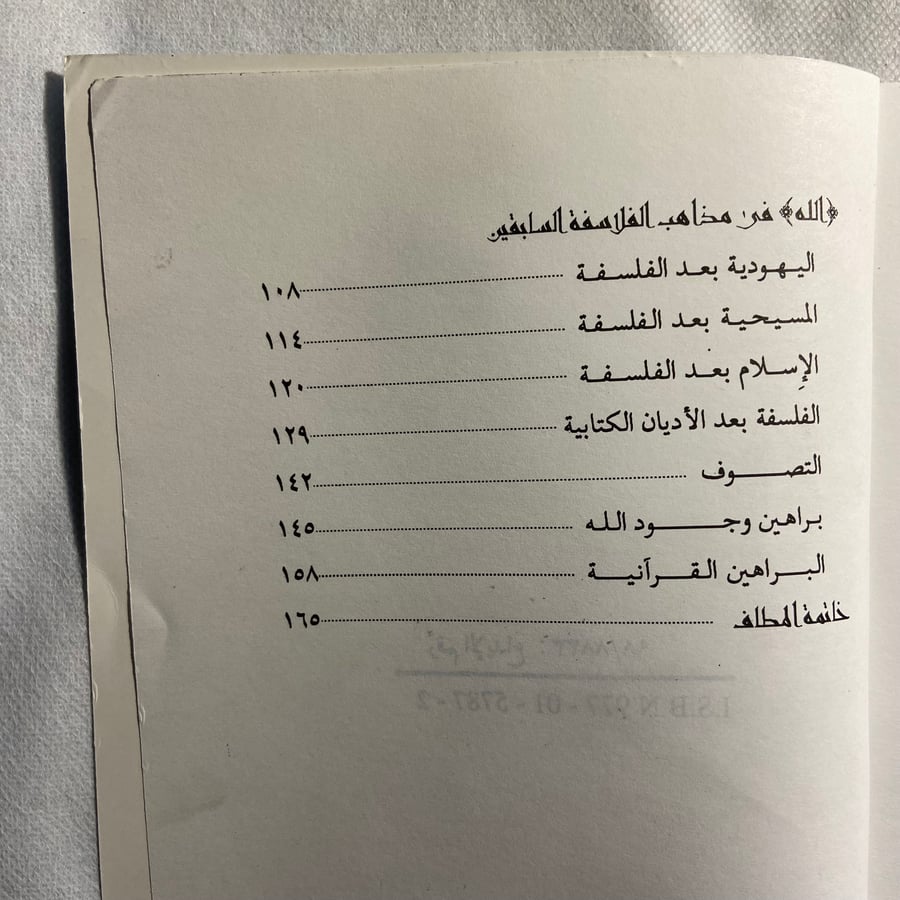 ﴿الله﴾ فى مذاهب الفلاسفة السابقين
اليهودية بعد الفلسفة ........ ١٠٨
المسيحية بعد الفلسفة ........ ١١٤
الإسلام بعد الفلسفة ........ ١٢٠
الفلسفة بعد الأديان الكتابية ........ ١٢٩
التصوف ........ ١٤٢
براهين وجود الله ........ ١٤٥
البراهين القرآنية ........ ١٥٨
خاتمة المطاف ........ ١٦٥
رقم الإيداع :
I.S.B.N 977 - 01 - 5787 - 2